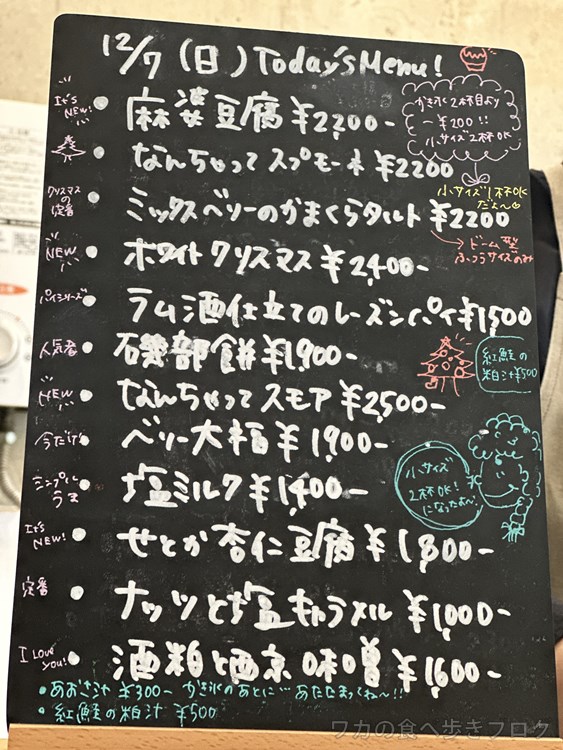 12/7 (日) Today's Menu!
It's NEW!
麻婆豆腐 ¥2,200-
かき氷2杯目より
-¥200!!
小サイズ2杯OK
なんちゃってスプモーネ ¥2200
小サイズ1杯OK
だよ〜
クリスマスの定番
ミックスベリーのかまくらタルト ¥2200
→ドーム型
ふつうサイズのみ
NEW
ホワイトクリスマス ¥2,400-
パイシリーズ
ラム酒仕立てのレーズンパイ ¥1,500
人気者
磯部餅 ¥1,900-
紅鮭の
粕汁¥500
NEW
なんちゃってスモア ¥2,500-
今だけ!
ベリー大福 ¥1,900-
小サイズ
2杯OK!
になったよん
シンプルうま
塩ミルク ¥1,400-
It's NEW!
せとか杏仁豆腐 ¥1,800-
定番
ナッツと塩キャラメル ¥1,000-
I Love you!
酒粕と西京味噌 ¥1,600-
•あおさ汁 ¥300- かき氷のあとに…あたたまってね〜!!
•紅鮭の粕汁 ¥500
ワカの食べ歩きブログ